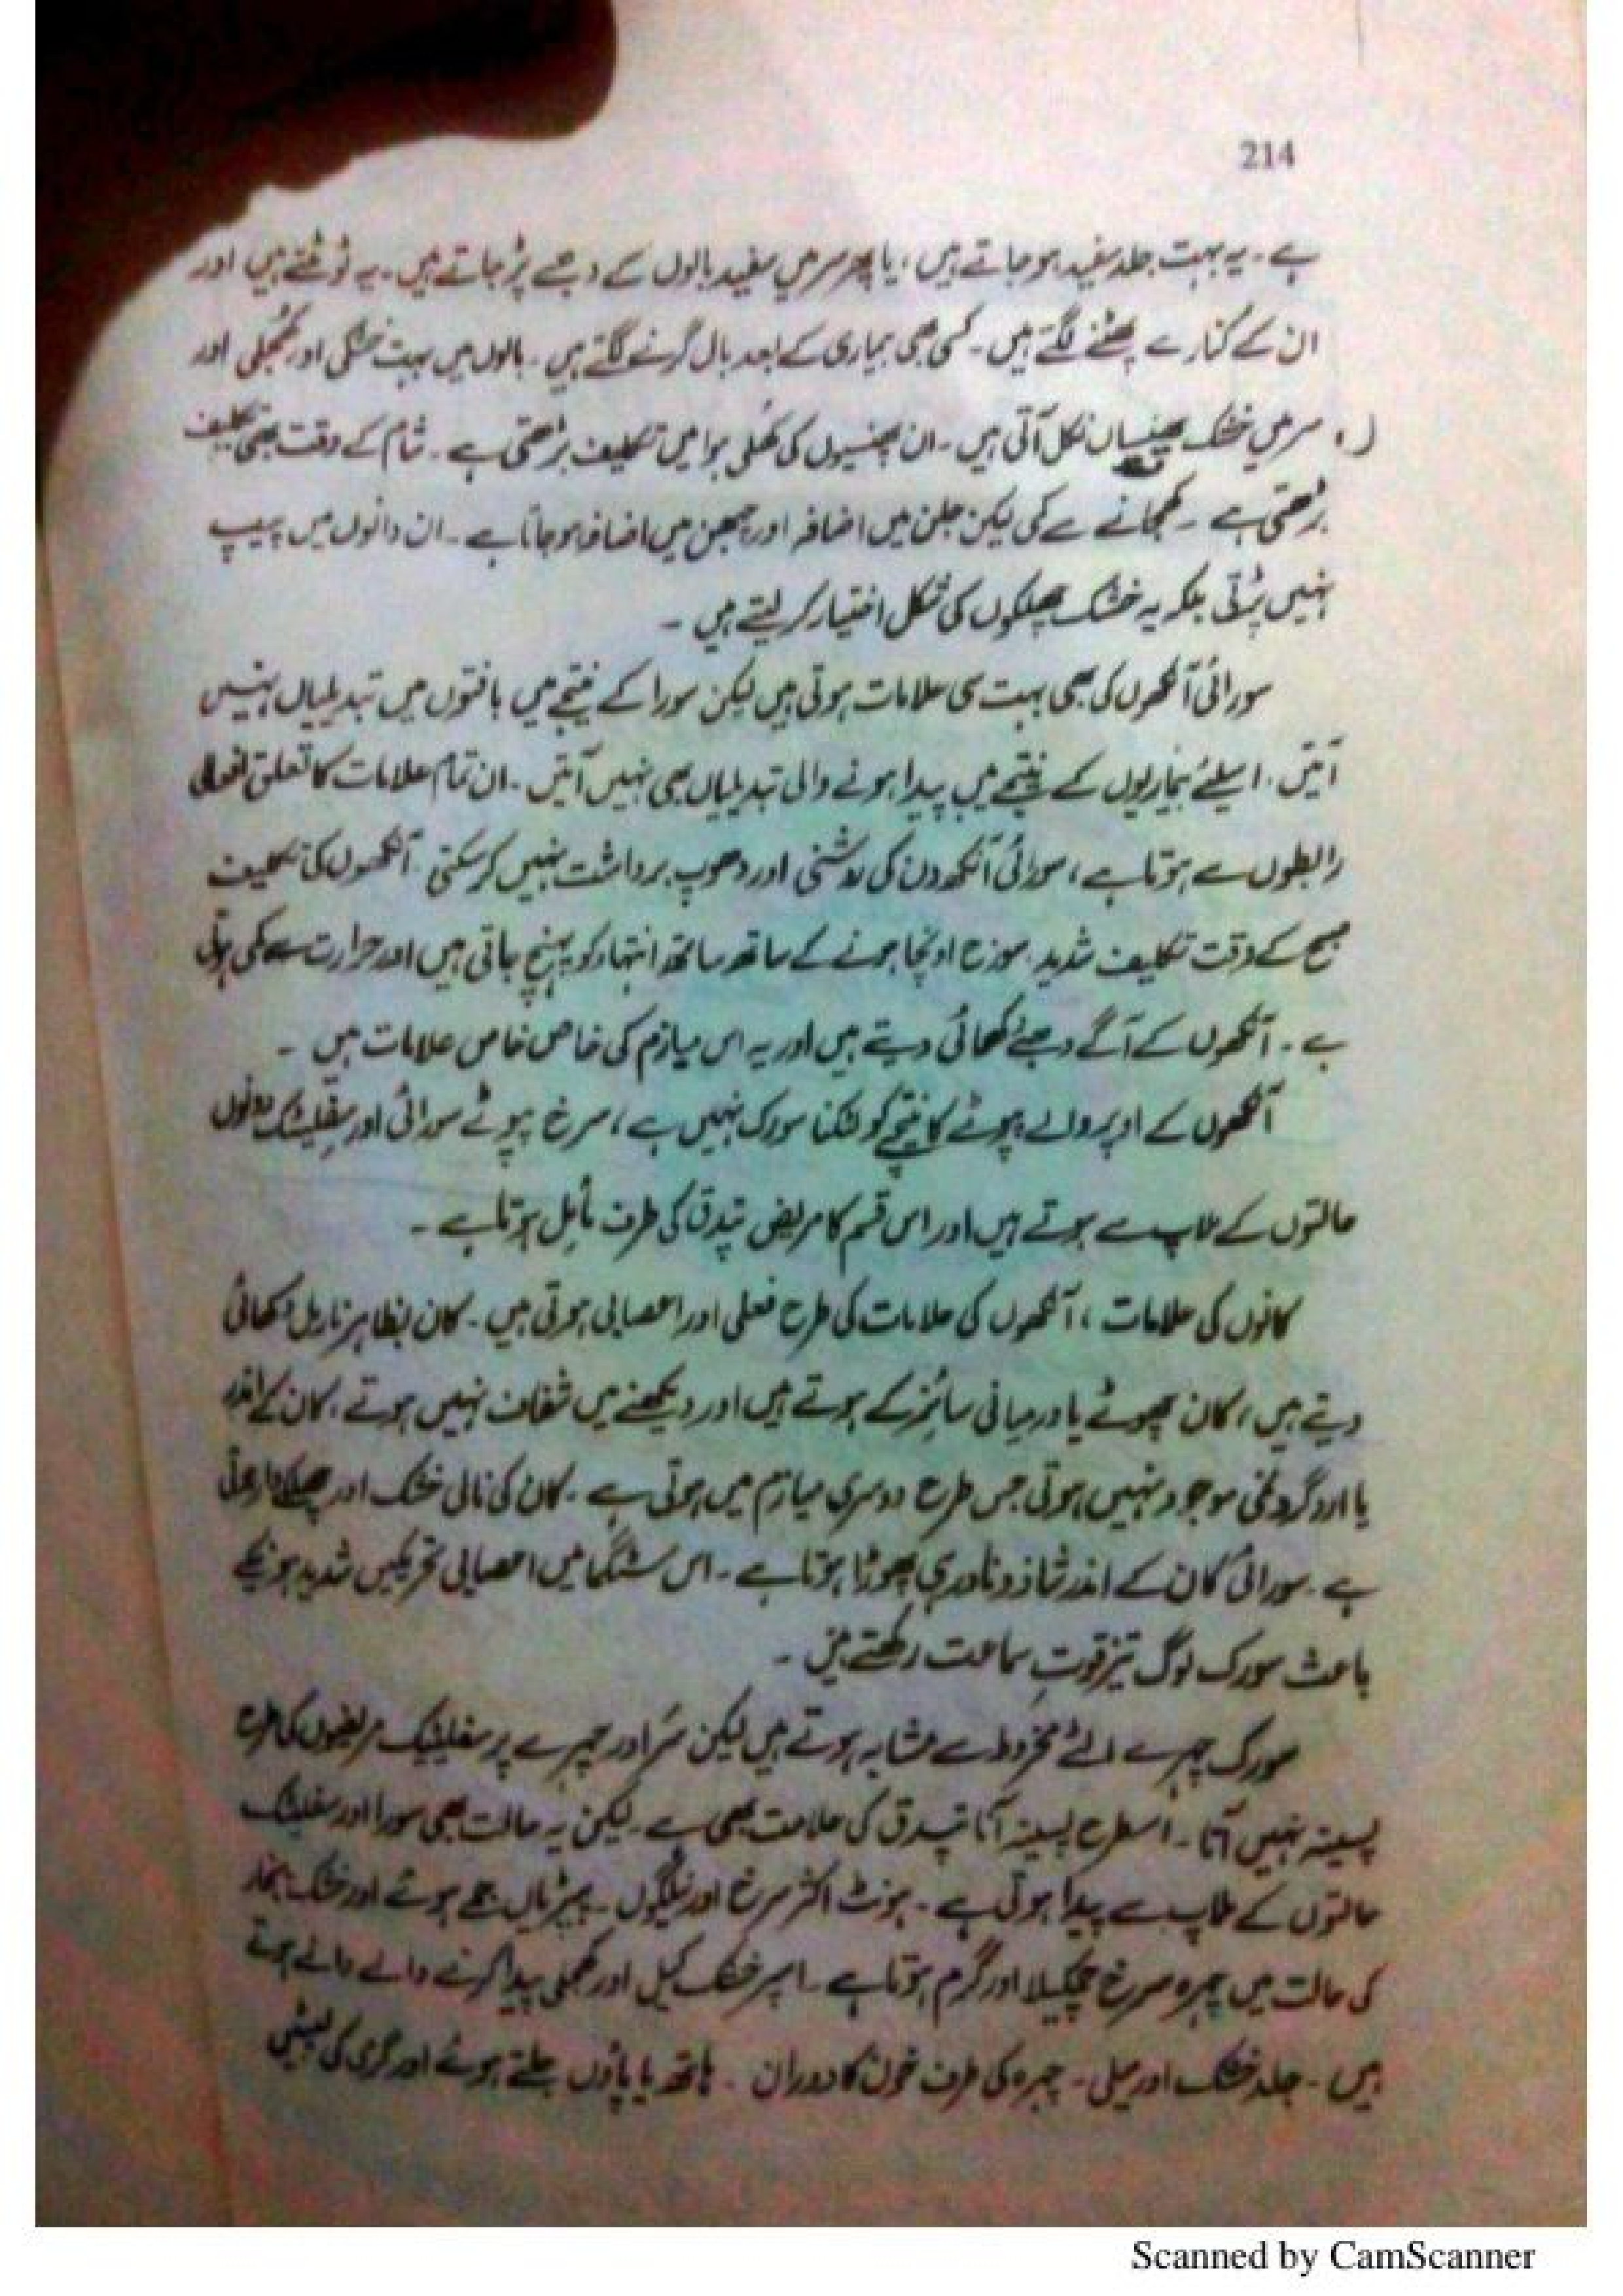 214
ہے ۔ یہ بہت جلد سفید ہو جاتے ہیں ، یا پھر سر میں سفید بالوں کے دھبے پڑ جاتے ہیں ۔ یہ ٹوٹتے ہیں اور
ان کے کنارے پھٹنے لگتے ہیں ۔ کسی بھی بیماری کے بعد بال گرنے لگتے ہیں ۔ بالوں میں بہت خشکی اور کھجلی اور
سر میں خشک پھنسیاں نکل آتی ہیں ۔ ان پھنسیوں کی کھلی ہوا میں تکلیف بڑھتی ہے ۔ شام کے وقت بھی تکلیف
بڑھتی ہے ۔ کھجانے سے کمی لیکن جلن میں اضافہ اور چبھن میں اضافہ ہو جاتا ہے ۔ ان دانوں میں پیپ
نہیں پڑتی بلکہ یہ خشک چھلکوں کی شکل اختیار کر لیتے ہیں ۔
سورائی آنکھوں کی بھی بہت سی علامات ہوتی ہیں لیکن سورا کے نتیجے میں بافتوں میں تبدیلیاں نہیں
آتیں ، اسلئے بیماریوں کے نتیجے میں پیدا ہونے والی تبدیلیاں بھی نہیں آتیں ۔ ان تمام علامات کا تعلق افعالی
رابطوں سے ہوتا ہے ، سورائی آنکھ دن کی روشنی اور دھوپ برداشت نہیں کر سکتی آنکھوں کی تکلیف
صبح کے وقت تکلیف شدید ، سورج اونچا ہونے کے ساتھ ساتھ انتہاء کو پہنچ جاتی ہیں اور حرارت سے کمی ہوتی
ہے ۔ آنکھوں کے آگے دھبے دکھائی دیتے ہیں اور یہ اس میازم کی خاص خاص علامات ہیں ۔
آنکھوں کے اوپر والے پپوٹے کا نیچے کو لٹکنا سورک نہیں ہے ، سرخ پپوٹے سورائی اور سفلیٹک دونوں
حالتوں کے ملاپ سے ہوتے ہیں اور اس قسم کا مریض تپدق کی طرف مائل ہوتا ہے ۔
کانوں کی علامات ، آنکھوں کی علامات کی طرح فعلی اور اعصابی ہوتی ہیں ۔ کان بظاہر نارمل دکھائی
دیتے ہیں ، کان چھوٹے یا درمیانی سائز کے ہوتے ہیں اور دیکھنے میں شفاف نہیں ہوتے ، کان کے اندر
یا ارد گرد نمی موجود نہیں ہوتی جس طرح دوسری میازم میں ہوتی ہے ۔ کان کی نالی خشک اور چھلکا دار ہوتی
ہے ۔ سورائی کان کے اندر شاذ و نادر ہی پھوڑا ہوتا ہے ۔ اس سٹگما میں اعصابی تحریکیں شدید ہونیکے
باعث سورک لوگ تیز قوتِ سماعت رکھتے ہیں ۔
سورک چہرے الٹے مخروط سے مشابہ ہوتے ہیں لیکن سَر اور چہرے پر سفلیٹک مریضوں کی طرح
پسینہ نہیں آتا ۔ اسطرح پسینہ آنا تپدق کی علامت بھی ہے ۔ لیکن یہ حالت بھی سورا اور سفلیٹک
حالتوں کے ملاپ سے پیدا ہوتی ہے ۔ ہونٹ اکثر سرخ اور نیلگوں ۔ پپڑیاں جمے ہوئے اور خشک بخار
کی حالت میں چہرہ سرخ چمکیلا اور گرم ہوتا ہے ۔ اسپر خشک کیل اور کھجلی پیدا کرنے والے دانے ہوتے
ہیں ۔ جلد خشک اور میلی ۔ چہرہ کی طرف خون کا دوران ۔ ہاتھ یا پاؤں جلتے ہوئے اور گرمی کی لپٹیں
Scanned by CamScanner